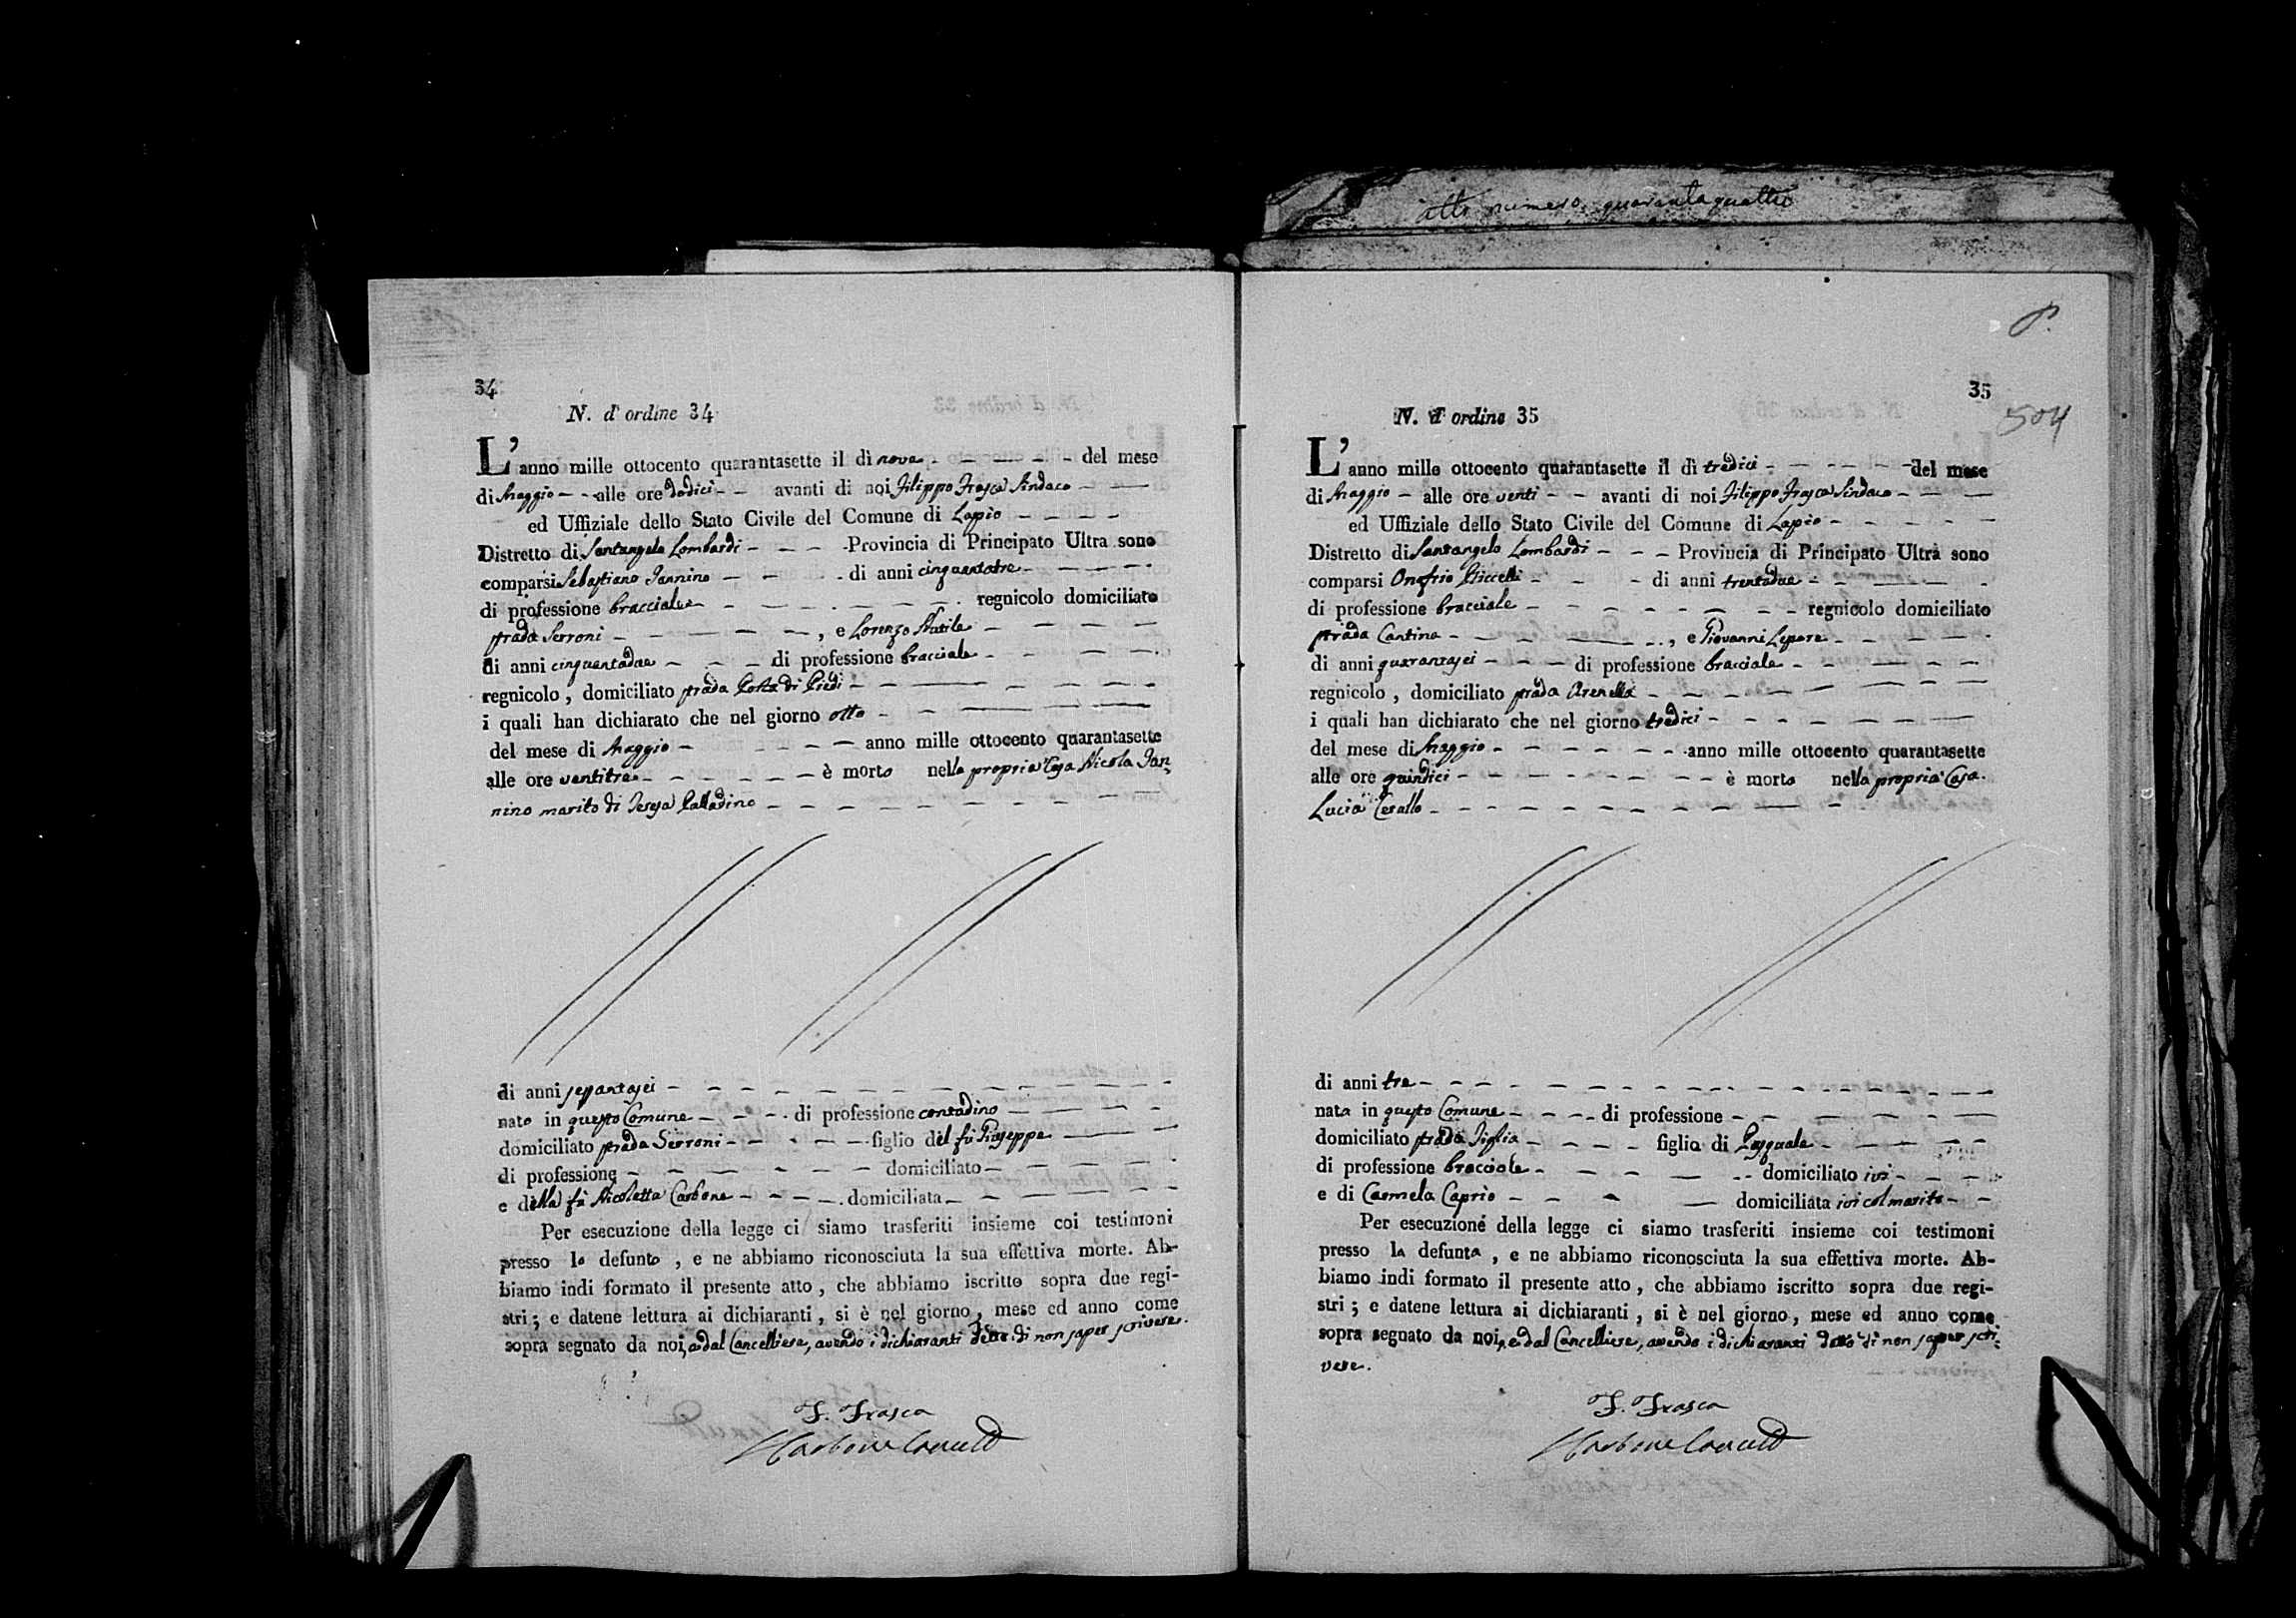 atto numero quarantaquattro
34
N. d'ordine 34
L'anno mille ottocento quarantasette il dì nove del mese
di Maggio alle ore dodici avanti di noi Filippo Frasca Sindaco
ed Uffiziale dello Stato Civile del Comune di Lapio
Distretto di Santangelo Lombardi Provincia di Principato Ultra sono
comparsi Sebastiano Iannino di anni cinquantatre
di professione bracciale regnicolo domiciliato
strada Serroni , e Lorenzo
di anni cinquantadue di professione bracciale
regnicolo , domiciliato strada Costa di Piedi
i quali han dichiarato che nel giorno otto
del mese di Maggio anno mille ottocento quarantasette
alle ore ventitre è morto nella propria Casa Nicola Ian=
nino marito di Teresa Palladino
di anni settantasei
nato in questo Comune di professione contadino
domiciliato strada Serroni figlio del fù Giuseppe
di professione domiciliato
e della fù Nicoletta Carbone domiciliata
Per esecuzione della legge ci siamo trasferiti insieme coi testimoni
presso lo defunto , e ne abbiamo riconosciuta la sua effettiva morte. Ab-
biamo indi formato il presente atto , che abbiamo iscritto sopra due regi-
stri ; e datene lettura ai dichiaranti , si è nel giorno , mese ed anno come
sopra segnato da noi, e dal Cancelliere, avendo i dichiaranti detto di non saper scrivere.
F. Frasca
Carbone Cancell
35
504
N. d'ordine 35
L'anno mille ottocento quarantasette il dì tredici del mese
di Maggio alle ore venti avanti di noi Filippo Frasca Sindaco
ed Uffiziale dello Stato Civile del Comune di Lapio
Distretto di Santangelo Lombardi Provincia di Principato Ultra sono
comparsi Onofrio Piccelli di anni trentadue
di professione bracciale regnicolo domiciliato
strada Cantina , e Giovanni Lepore
di anni quarantasei di professione bracciale
regnicolo , domiciliato strada Arenella
i quali han dichiarato che nel giorno tredici
del mese di Maggio anno mille ottocento quarantasette
alle ore quindici è morta nella propria Casa
Lucia
di anni tre
nata in questo Comune di professione
domiciliato strada figlia di Pasquale
di professione bracciale domiciliato ivi
e di Carmela Caprio domiciliata ivi col marito
Per esecuzione della legge ci siamo trasferiti insieme coi testimoni
presso la defunta , e ne abbiamo riconosciuta la sua effettiva morte. Ab-
biamo indi formato il presente atto , che abbiamo iscritto sopra due regi-
stri ; e datene lettura ai dichiaranti , si è nel giorno , mese ed anno come
sopra segnato da noi, e dal Cancelliere, avendo i dichiaranti detto di non saper scri=
vere.
F. Frasca
Carbone Cancell